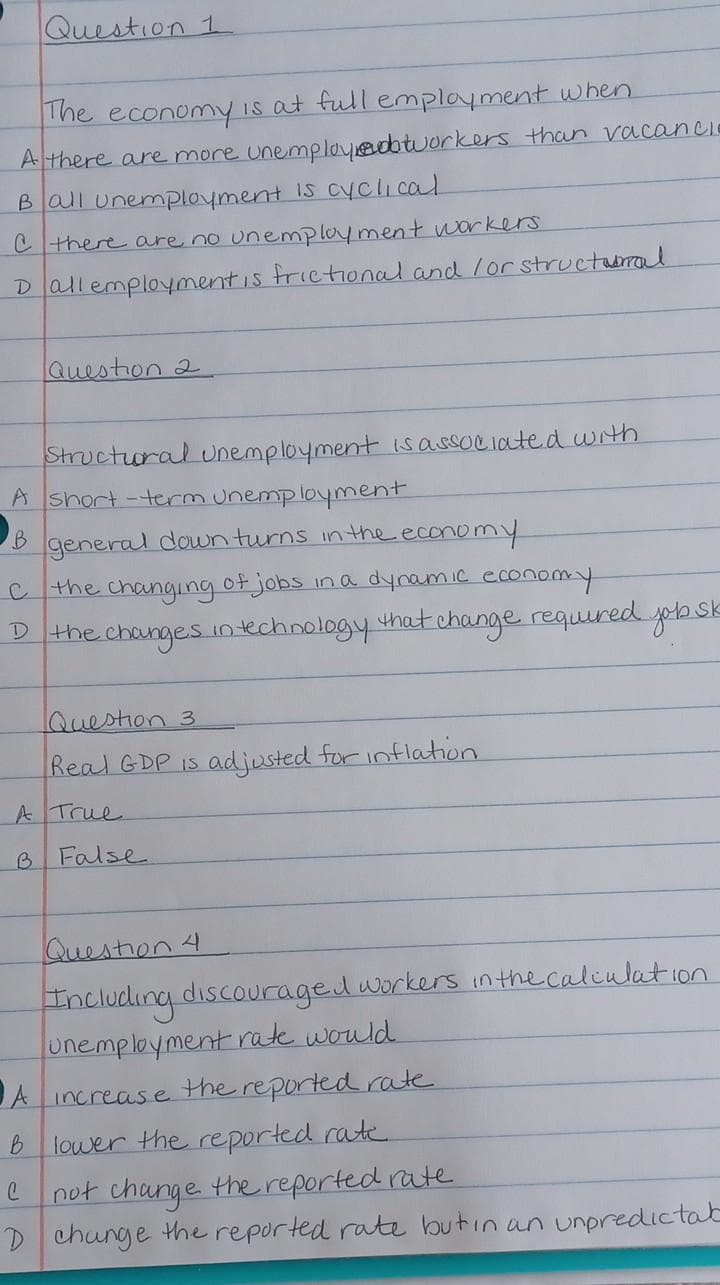 Question 1
The economy is at full employment when
A there are more unemployed workers than vacancie
B all unemployment is cyclical
C there are no unemployment workers
D all employment is frictional and /or structural
Question 2
Structural unemployment is associated with
A short-term unemployment
B general downturns in the economy
C the changing of jobs in a dynamic economy
D the changes in technology that change required job sk
Question 3
Real GDP is adjusted for inflation
A True
B False
Question 4
Including discouraged workers in the calculation
unemployment rate would
A increase the reported rate
B lower the reported rate
C not change the reported rate
D change the reported rate but in an unpredictab